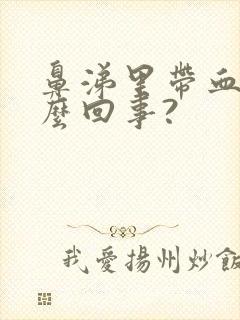 鼻涕里帶血
麼回事?
我愛揚州炒飯